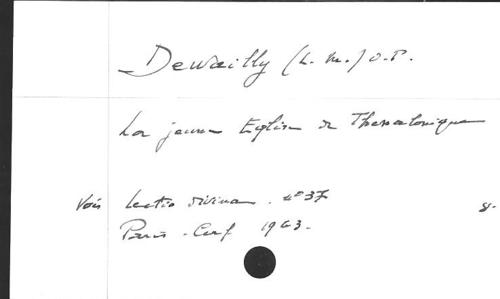 Dewailly (L. M.) O.P.
La jeune Eglise de Thessalonique
Voir Lectio divina. n° 37 8.
Paris - Cerf 1963.